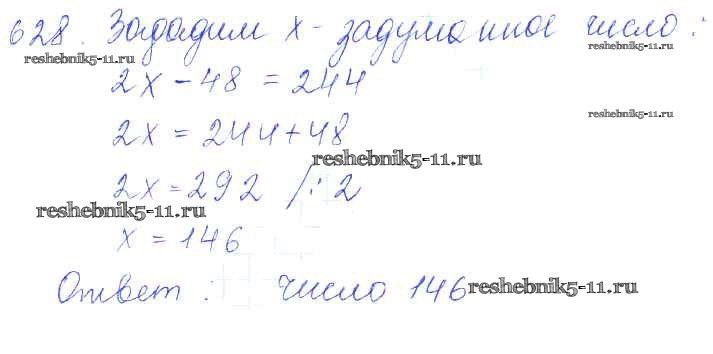 628. Зададим x - задуманное число:
reshebnik5-11.ru
2x - 48 = 244
reshebnik5-11.ru
2x = 244 + 48
reshebnik5-11.ru
2x = 292 /: 2
reshebnik5-11.ru
x = 146
Ответ: число 146
reshebnik5-11.ru